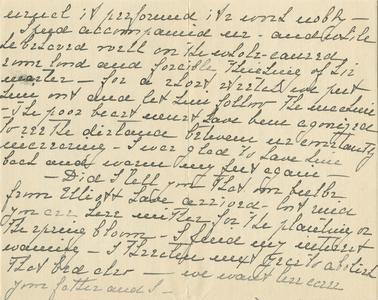 urnel it performed its work nobly —
Fred accompanied us — and while
he behaved well on the whole — caused
some loud and forcible thinking of his
master — for a short stretch we put
him out and let him follow the machine
— The poor beast must have been agonized
to see the distance between us constantly
increasing — I was glad to have him
back and warm my feet again —
— Did I tell you that the bulbs
from Elliott have arrived — but mid
you are here neither for the planting or
the spring bloom — I find my interest
waning — I threaten next year to abolish
that bed also — we want
your father and I —